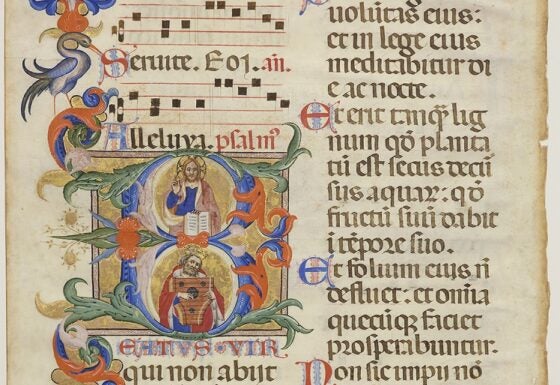 Seruite. Eoı. an̄.
Alleluya. psalmꝰ
EATVS·VIR
qui non abijt
uolūtas eius:
et in lege eius
meditabitur di
e ac nocte.
Et erit tanqꝫ lig
num qđ planta
tū est secus decū
sus aquaꝝ: qđ
fructū suū dabit
ī tēpore suo.
Et folium eius n̄
defluet: et om̄ia
quecūqꝫ faciet
prosperabuntur.
Non sic impij nō